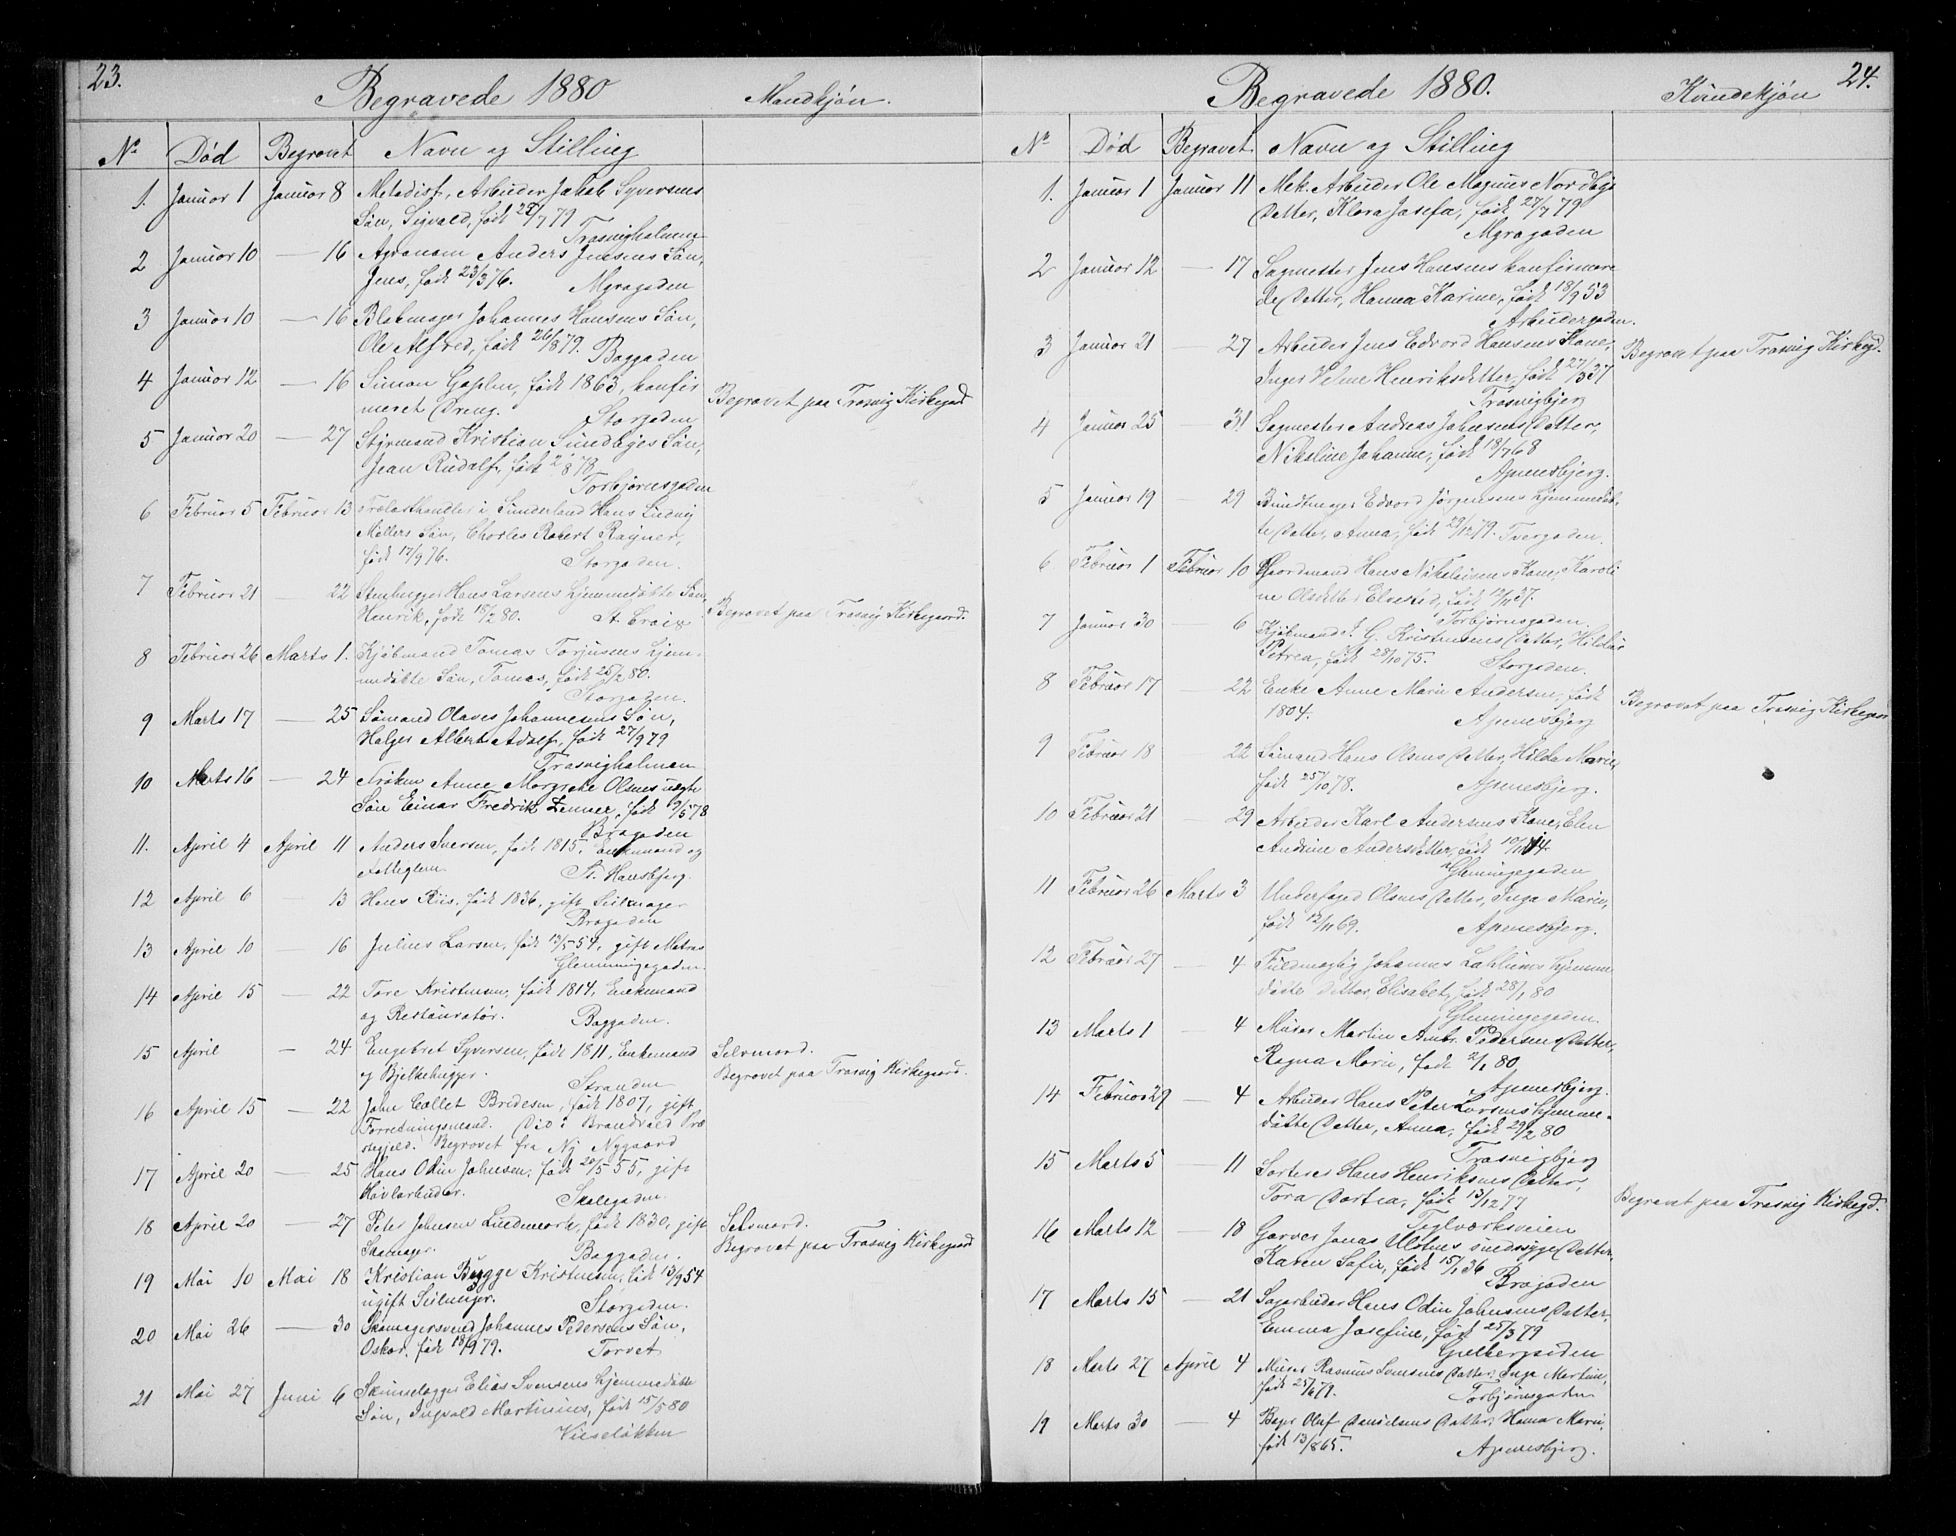 23.
Begravede 1880 Mandkjøn.
No Død Begravet Navn og Stilling
1. Januar 1 Januar 8 Metodist, Arbeider Jakob Syversens
Søn, Sigvald, født /7 79
Trosvigholmen
2 Januar 10 — 16 Agronom Anders Jensens Søn,
Jens, født 23/3 76. Myragaden
3 Januar 10 — 16 Blokmager Johannes Hansens Søn,
Ole Alfred, født 26/8 79. Baggaden
4 Januar 12 — 16 Simon født 1863, konfir
meret Dreng. Storgaden Begravet paa Trosvig Kirkegaard
5 Januar 20 — 27 Styrmand Kristian Sundbyes Søn,
Jean Rudolf, født 78
Torbjørnsgaden
6 Februar 5 Februar 13 Trælasthandler i Sunderland Hans Ludvig
Møllers Søn, Charles Robert Rayner,
født 17/9 76. Storgaden.
7 Februar 21 — 22 Stenhugger Hans Larsens hjemmedøbte Søn,
Henrik, født 15/2 80. St. Croix Begravet paa Trosvig Kirkegaard.
8 Februar 26 Marts 1. Kjøbmand Tomas Torjusens hjem-
medøbte Søn, Tomas, født 25/2 80.
Storgaden.
9 Marts 17 — 25 Sømand Olaves Johannesens Søn,
Holger Albert Adolf, født 27/9 79
Trosvigholmen
10 Marts 16 — 24 Frøken Anne Margrete Olsens uægte
Søn Einar Fredrik født 9/5 78
Brogaden
11. April 4 April 11 Anders Iversen, født 1815. Enkemand og
Fattiglem St. Hansbjerg.
12 April 6 — 13 Hans Riis, født 1836, gift Seilmager
Brogaden
13 April 10 — 16 Julius Larsen, født 13/5 54, gift Matros
Glemmingegaden.
14 April 15 — 22 Tore Kristensen, født 1814, Enkemand
og Restauratør. Baggaden.
15 April — 24 Engebret Syversen, født 1811, Enkemand Selvmord.
og Bjelkehugger. Stranden Begravet paa Trosvig Kirkegaard.
16 April 15 — 22 John Collet Bredesen, født 1807, gift
Forretningsmand. Død i Brandvold Præ
stegjeld. Begravet fra Ny Nygaard
17 April 20 — 25 Hans Odin Johnsen, født 20/5 55, gift
Høvlarbeider. Skolegaden.
18 April 20 — 27 Peter Johnsen Lindmark, født 1830, gift Selvmord.
Skomager. Baggaden. Begravet paa Trosvig Kirkegaard
19 Mai 10 Mai 18 Kristian Bugge Kristensen, født 13/9 54
ugift Seilmager. Storgaden.
20 Mai 26 — 30 Skomagersvend Johannes Pedersens Søn,
Oskar, født 18/9 79. Torvet
21 Mai 27 Juni 6 Skindlægger Elias Svensens hjemmedøbte
Søn, Ingvald Martinius, født 15/5 80
24.
Begravede 1880. Kvindekjøn
No Død Begravet Navn og Stilling
1. Januar 1 Januar 11 Mek. Arbeider Ole Magnus Nordbys
Datter, Klara Josefa, født 27/7 79
Myragaden
2 Januar 12 — 17 Sagmester Jens Hansens konfirmere
de Datter, Hanna Karine, født 18/9 53
Arbeidergaden.
3 Januar 21 — 27 Arbeider Jens Edvard Hansens Kone, Begravet paa Trosvig Kirkegd.
Inger Helene Henriksdatter, født 27/3 37
Trosvigbjerg
4 Januar 25 — 31 Sagmester Andreas Johnsens Datter,
Nikoline Johanne, født 18/7 68
Apenesbjerg.
5 Januar 19 — 29 Bundtmager Edvard Jørgensens hjemmedøb-
te Datter, Anna, født 29/12 79. Tvergaden.
6 Februar 1 Februar 10 Gaardmand Hans Nikolaisens Kone, Karoli
ne Olsdatter Elvested, født 12/11 37.
Torbjørnsgaden.
7 Januar 30 — 6 Kjøbmand J. G. Kristensens Datter, Hildur
Petrea, født 28/10 75. Storgaden.
8 Februar 17 — 22 Enke Anne Marie Andersen, født
1804. Apenesbjerg Begravet paa Trosvig Kirkegaard
9 Februar 18 — 22 Sømand Hans Olsens Datter, Hilda Marie,
født 25/10 78. Apenesbjerg.
10 Februar 21 — 29 Arbeider Karl Andersens Kone, Elen
Andrine Andersdatter, født
Glemmingegaden
11 Februar 26 Marts 3 Underfoged Olsens Datter, Inga Marie,
født 12/11 69. Apenesbjerg.
12 Februar 27 — 4 Fuldmægtig Johannes hjemme
døbte Datter, Elisabet, født 28/1 80
Glemmingegaden.
13 Marts 1 — 4 Murer Martin Ambr. Pedersens Datter,
Ragna Marie, født 2/1 80
Apenesbjerg.
14 Februar 29 — 4 Arbeider Hans Peter Larsens hjemme-
døbte Datter, Anna, født 29/2 80
Trosvigbjerg
15 Marts 5 — 11 Sorterer Hans Henriksens Datter,
Tora Dortea, født 13/12 77 Begravet paa Trosvig Kirkegd.
Teglværksveien
16 Marts 12 — 18 Garver Jonas sindssyge Datter,
Karen Sofie, født 15/1 36
Brogaden
17 Marts 15 — 21 Sagarbeider Hans Odin Johnsens Datter,
Emma Josefine, født 25/3 79
18 Marts 27 April 4 Murer Rasmus Svensens Datter, Inga Martine,
født 25/6 79. Torbjørnsgaden
19 Marts 30 — 4 Bager Oluf Danielsens Datter, Hanna Marie,
født 13/8 65. Apenesbjerg.